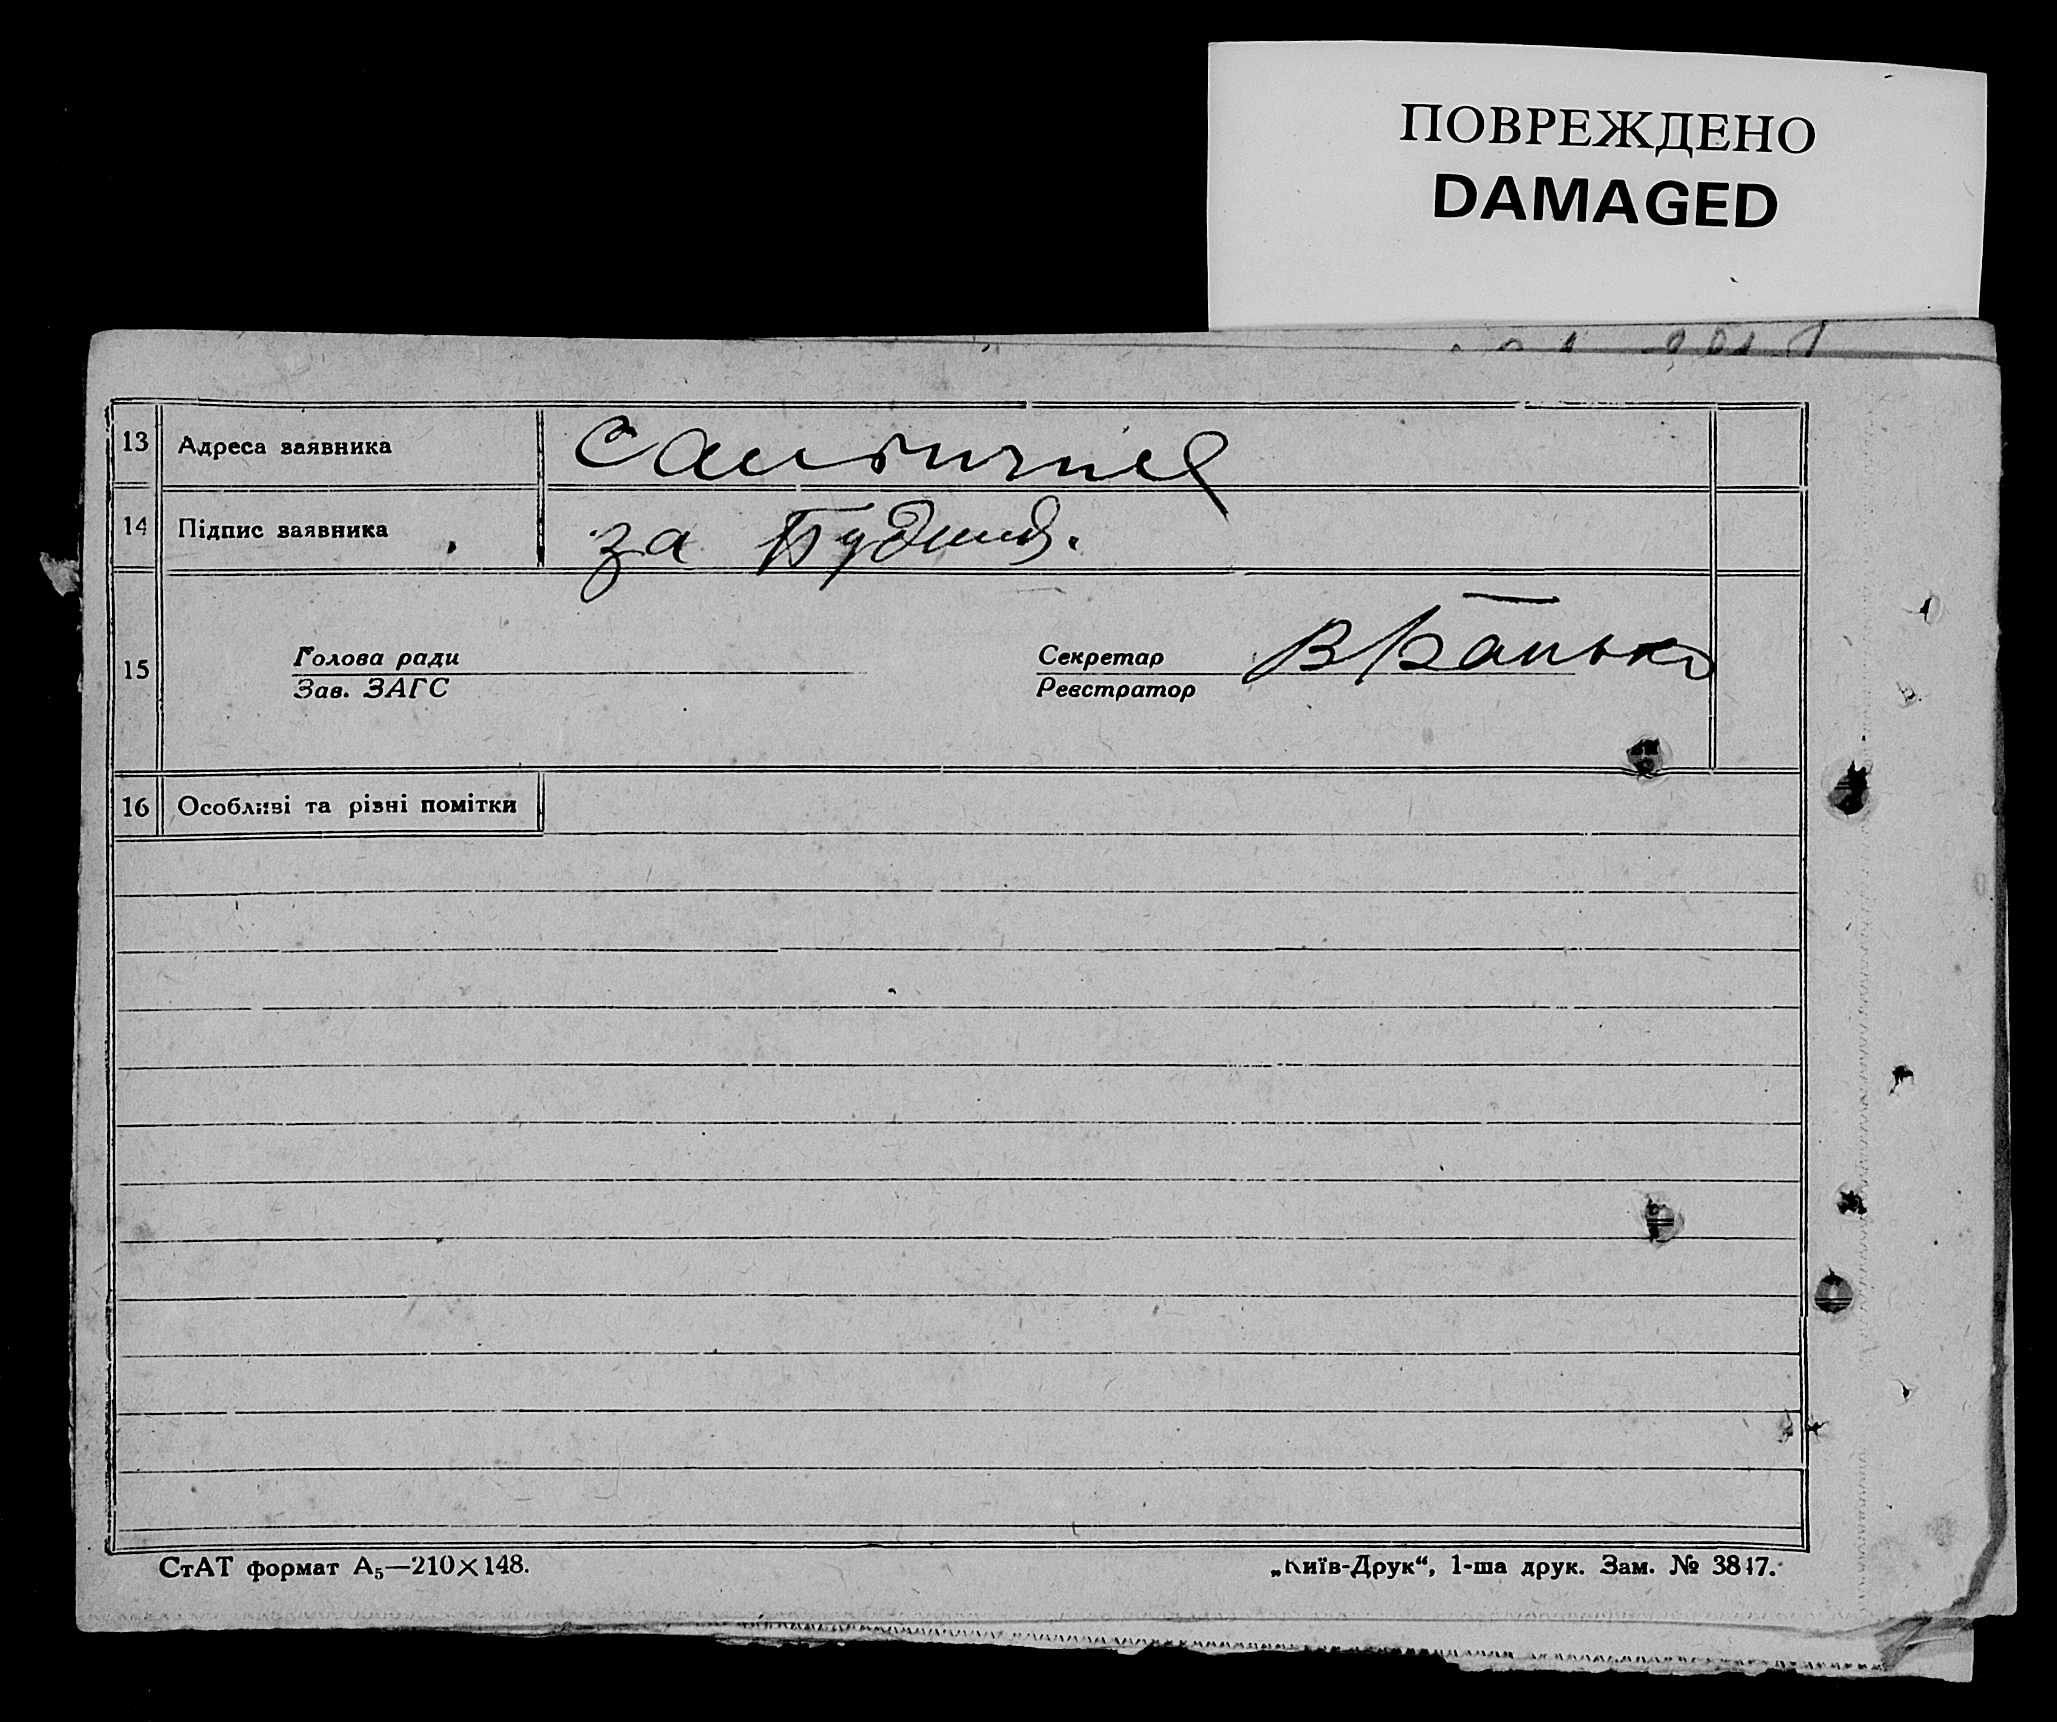 ПОВРЕЖДЕНО
DAMAGED
13 Адреса заявника
14 Підпис заявника за
15 Голова ради Секретар
Зав. ЗАГС Реєстратор
16 Особливі та різні помітки
СтАТ формат А₅—210×148. „Київ-Друк“, 1-ша друк. Зам. № 3847.